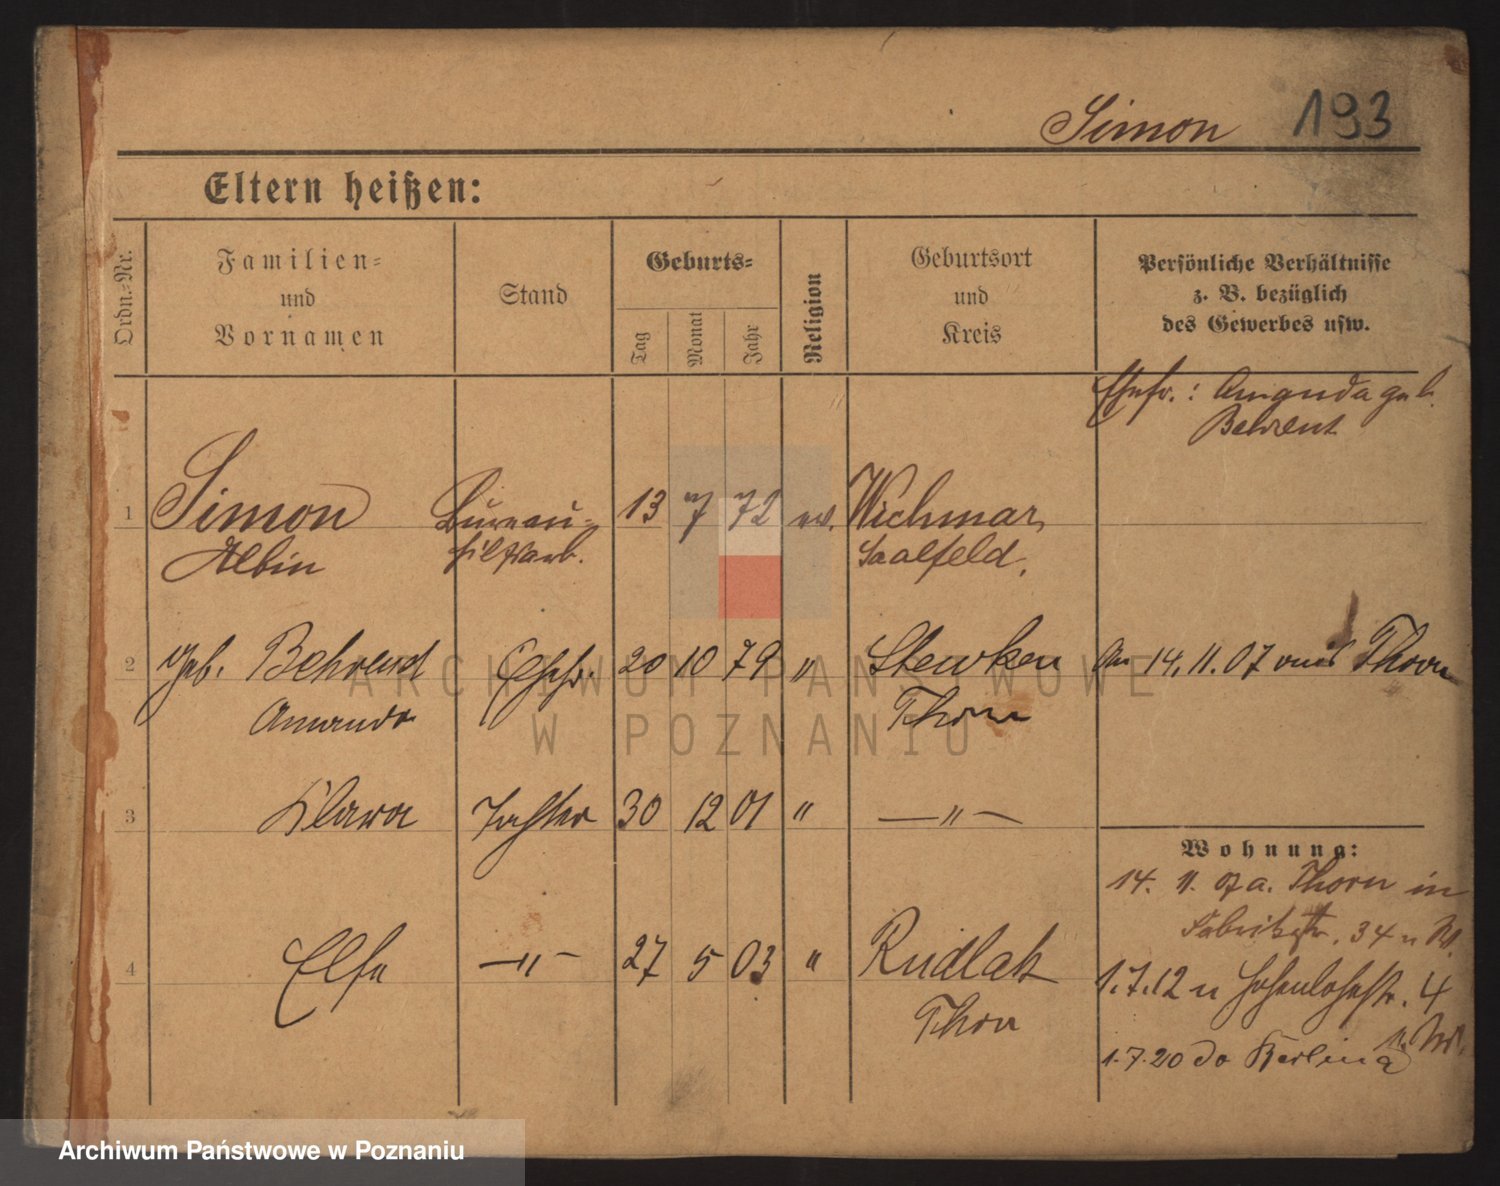 Simon 193
Eltern heißen:
Ordn.-Nr.
Familien-
und
Vornamen
Stand
Geburts-
Tag
Monat
Jahr
Religion
Geburtsort
und
Kreis
Persönliche Verhältnisse
z. B. bezüglich
des Gewerbes usw.
Ehefr.: Amanda geb.
Behrent
1 Simon Bureau- 13 7 72 ev. Wichmar
Albin hilfsarb. Saalfeld.
2 geb. Behrend Ehefr. 20 10 79 " Stewken An 14.11.07 aus Thorn
Amanda Thorn
3 Klara Tochter 30 12 01 " —"—
Wohnung:
14. 11. 07 a. Thorn in
Fabrikstr. 34
4 Else —"— 27 5 03 " Rudak
Thorn
1.7.12 n Hohenlohestr. 4
1.7.20 do Berlin
ARCHIWUM PAŃSTWOWE
W POZNANIU
Archiwum Państwowe w Poznaniu